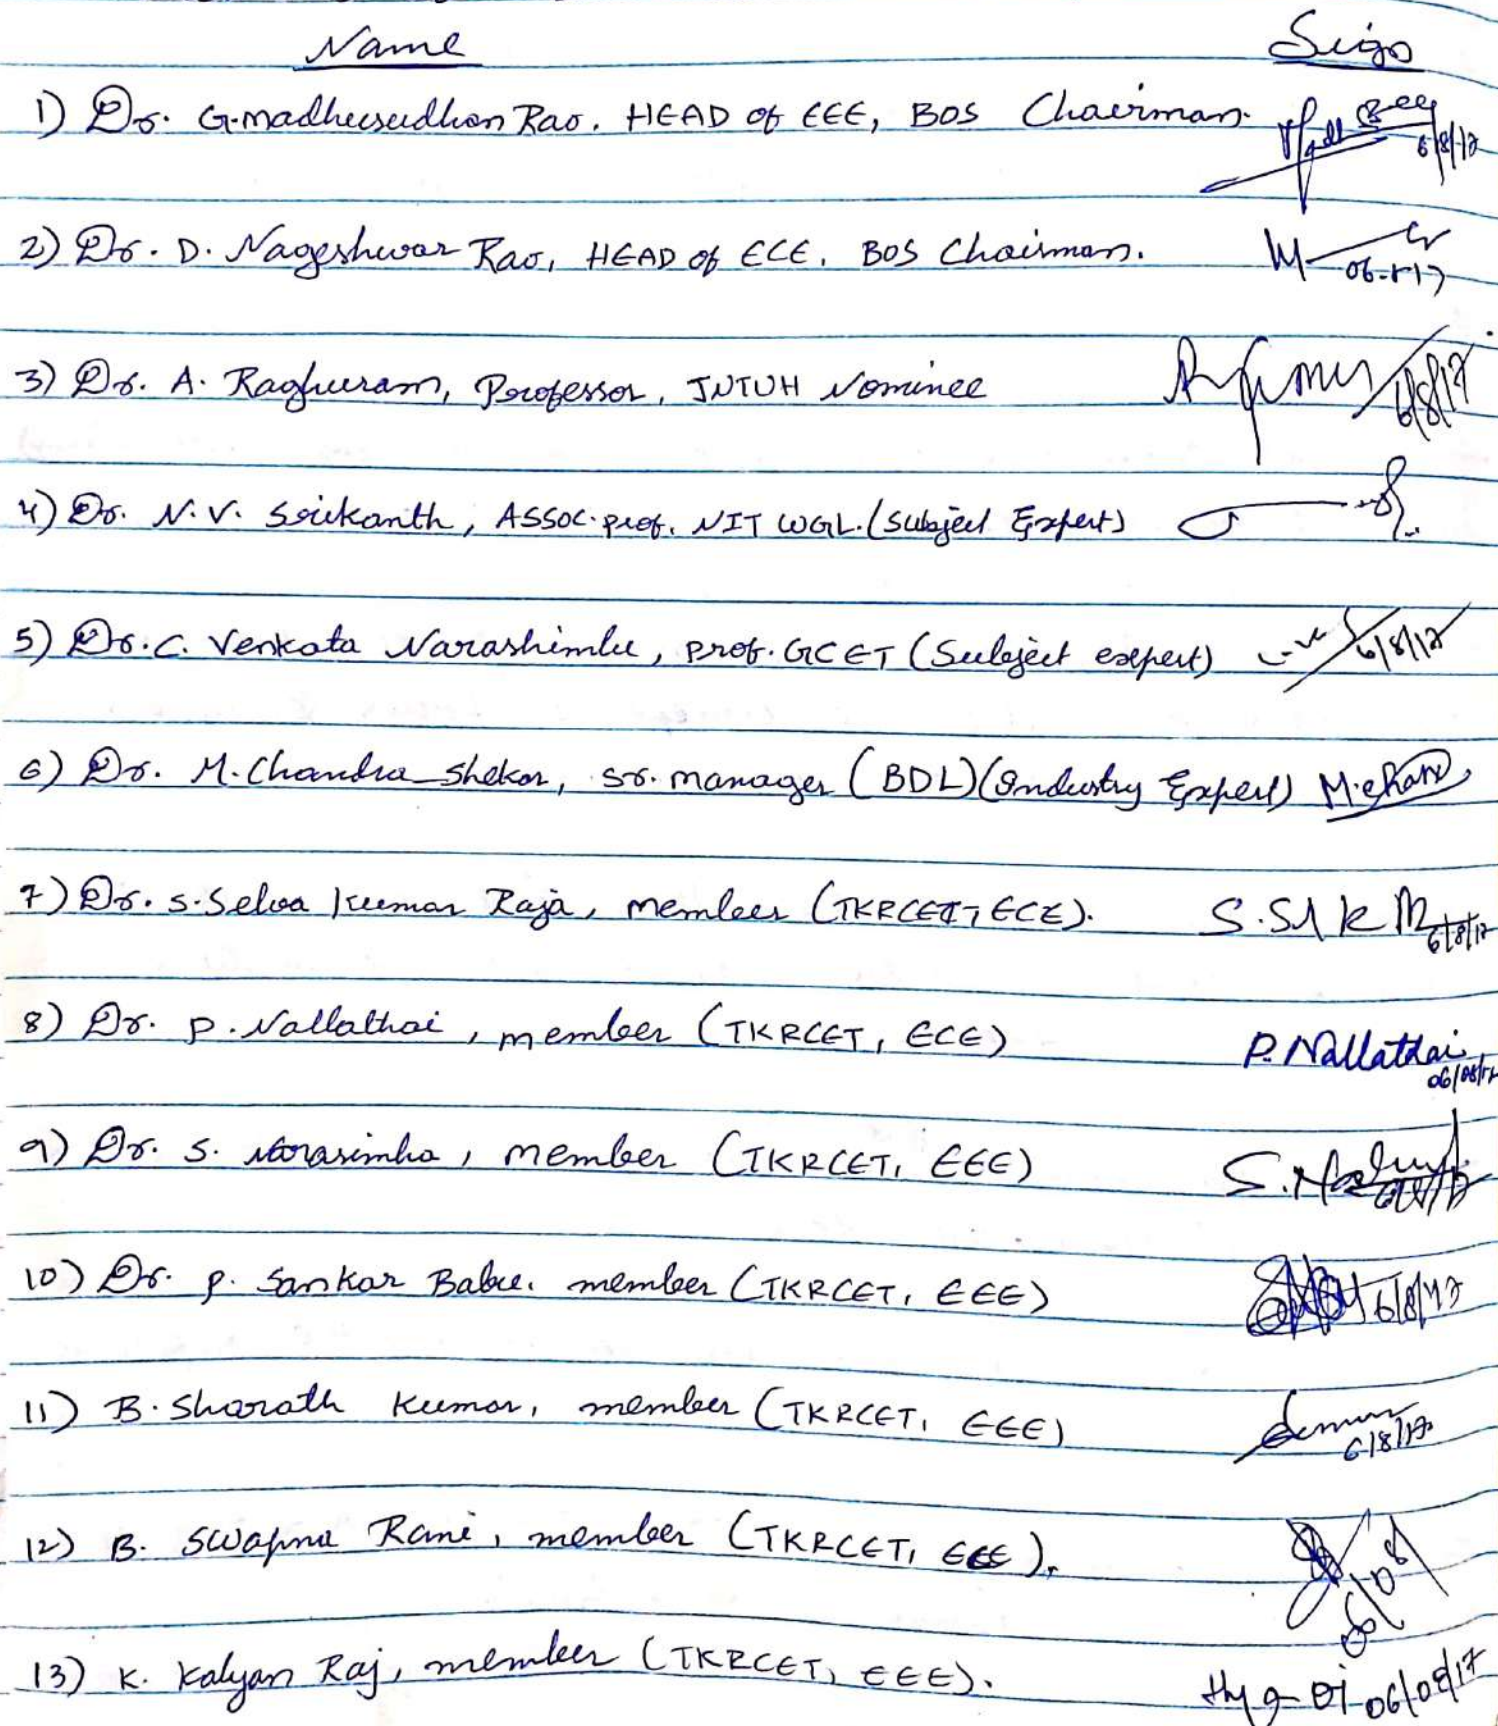 Name Sign
1) Dr. G. madhusudhan Rao. HEAD of EEE, BOS Chairman. 6/8/17
2) Dr. D. Nageshwar Rao, HEAD of ECE. BOS Chairman. 06-8-17
3) Dr. A. Raghuram, Professor, JNTUH Nominee 6/8/17
4) Dr. N.V. Srikanth, ASSOC. prof. NIT WGL. (Subject Expert)
5) Dr. C. Venkata Narashimlu, prof. GCET (Subject expert) 6/8/17
6) Dr. M. Chandra Shekar, sr. manager (BDL) (Industry Expert)
7) Dr. S. Selva Kumar Raja, member (TKRCET, ECE). 6/8/17
8) Dr. P. Nallathai, member (TKRCET, ECE) P. Nallathai 06/08/17
9) Dr. S. Narasimha, member (TKRCET, EEE)
10) Dr. P. Sankar Babu. member (TKRCET, EEE) 6/8/17
11) B. Sharath Kumar, member (TKRCET, EEE) 6/8/17
12) B. Swapna Rani, member (TKRCET, EEE). 06/08
13) K. Kalyan Raj, member (TKRCET, EEE). 06/08/17